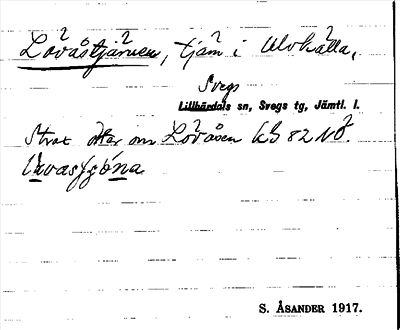 Lövåstjärnen, tjärn i Ulvkälla,
Svegs
Lillhärdals sn, Svegs tg, Jämtl. l.
Strax öster om Lövåsen kB 82 NÖ.
S. ÅSANDER 1917.